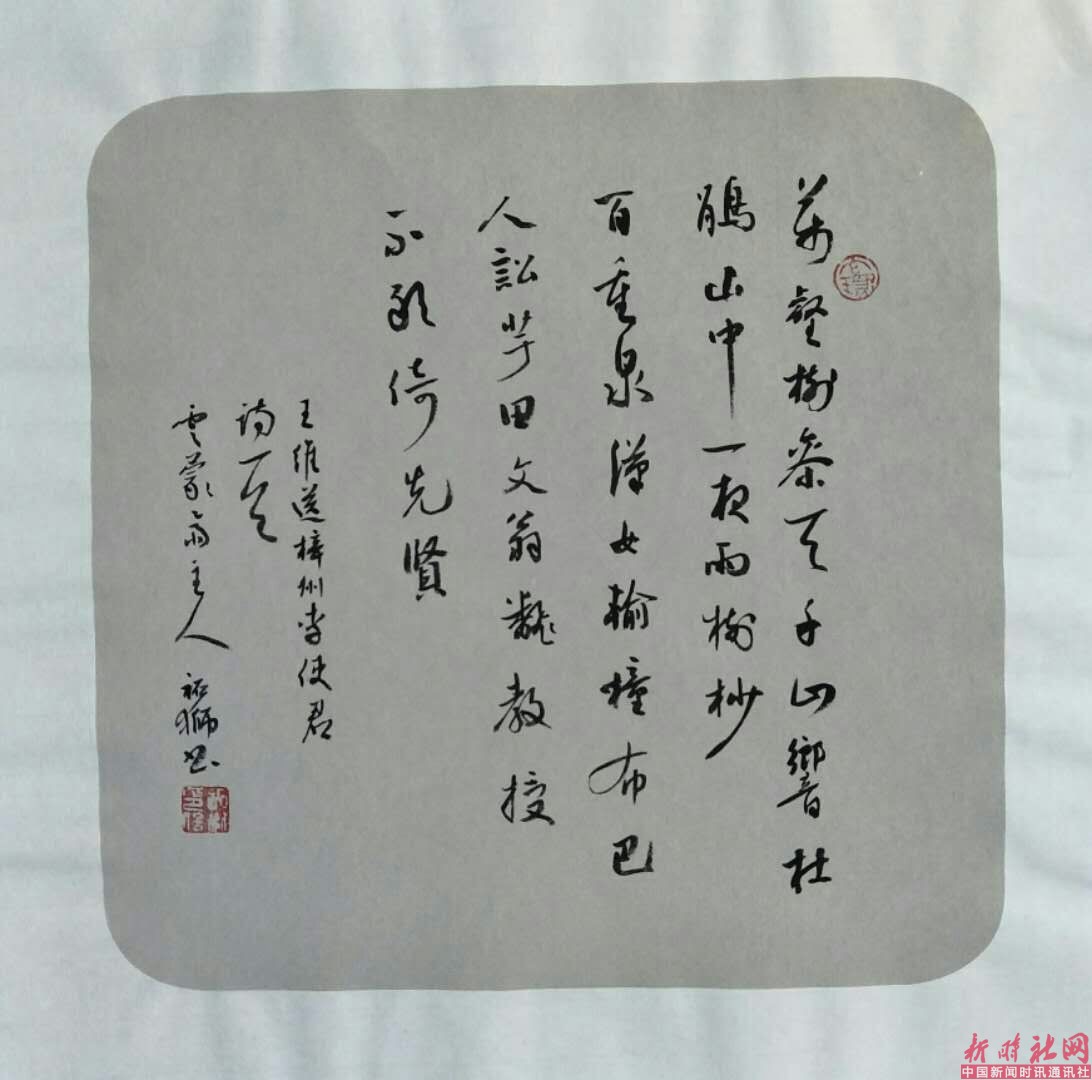 萬壑樹參天千山響杜
鵑山中一夜雨樹杪
百重泉漢女輸橦布巴
人訟芋田文翁翻教授
不敢倚先賢
王維送梓州李使君
詩一首
雲蒙斋主人
新時社网
中国新闻时讯通讯社